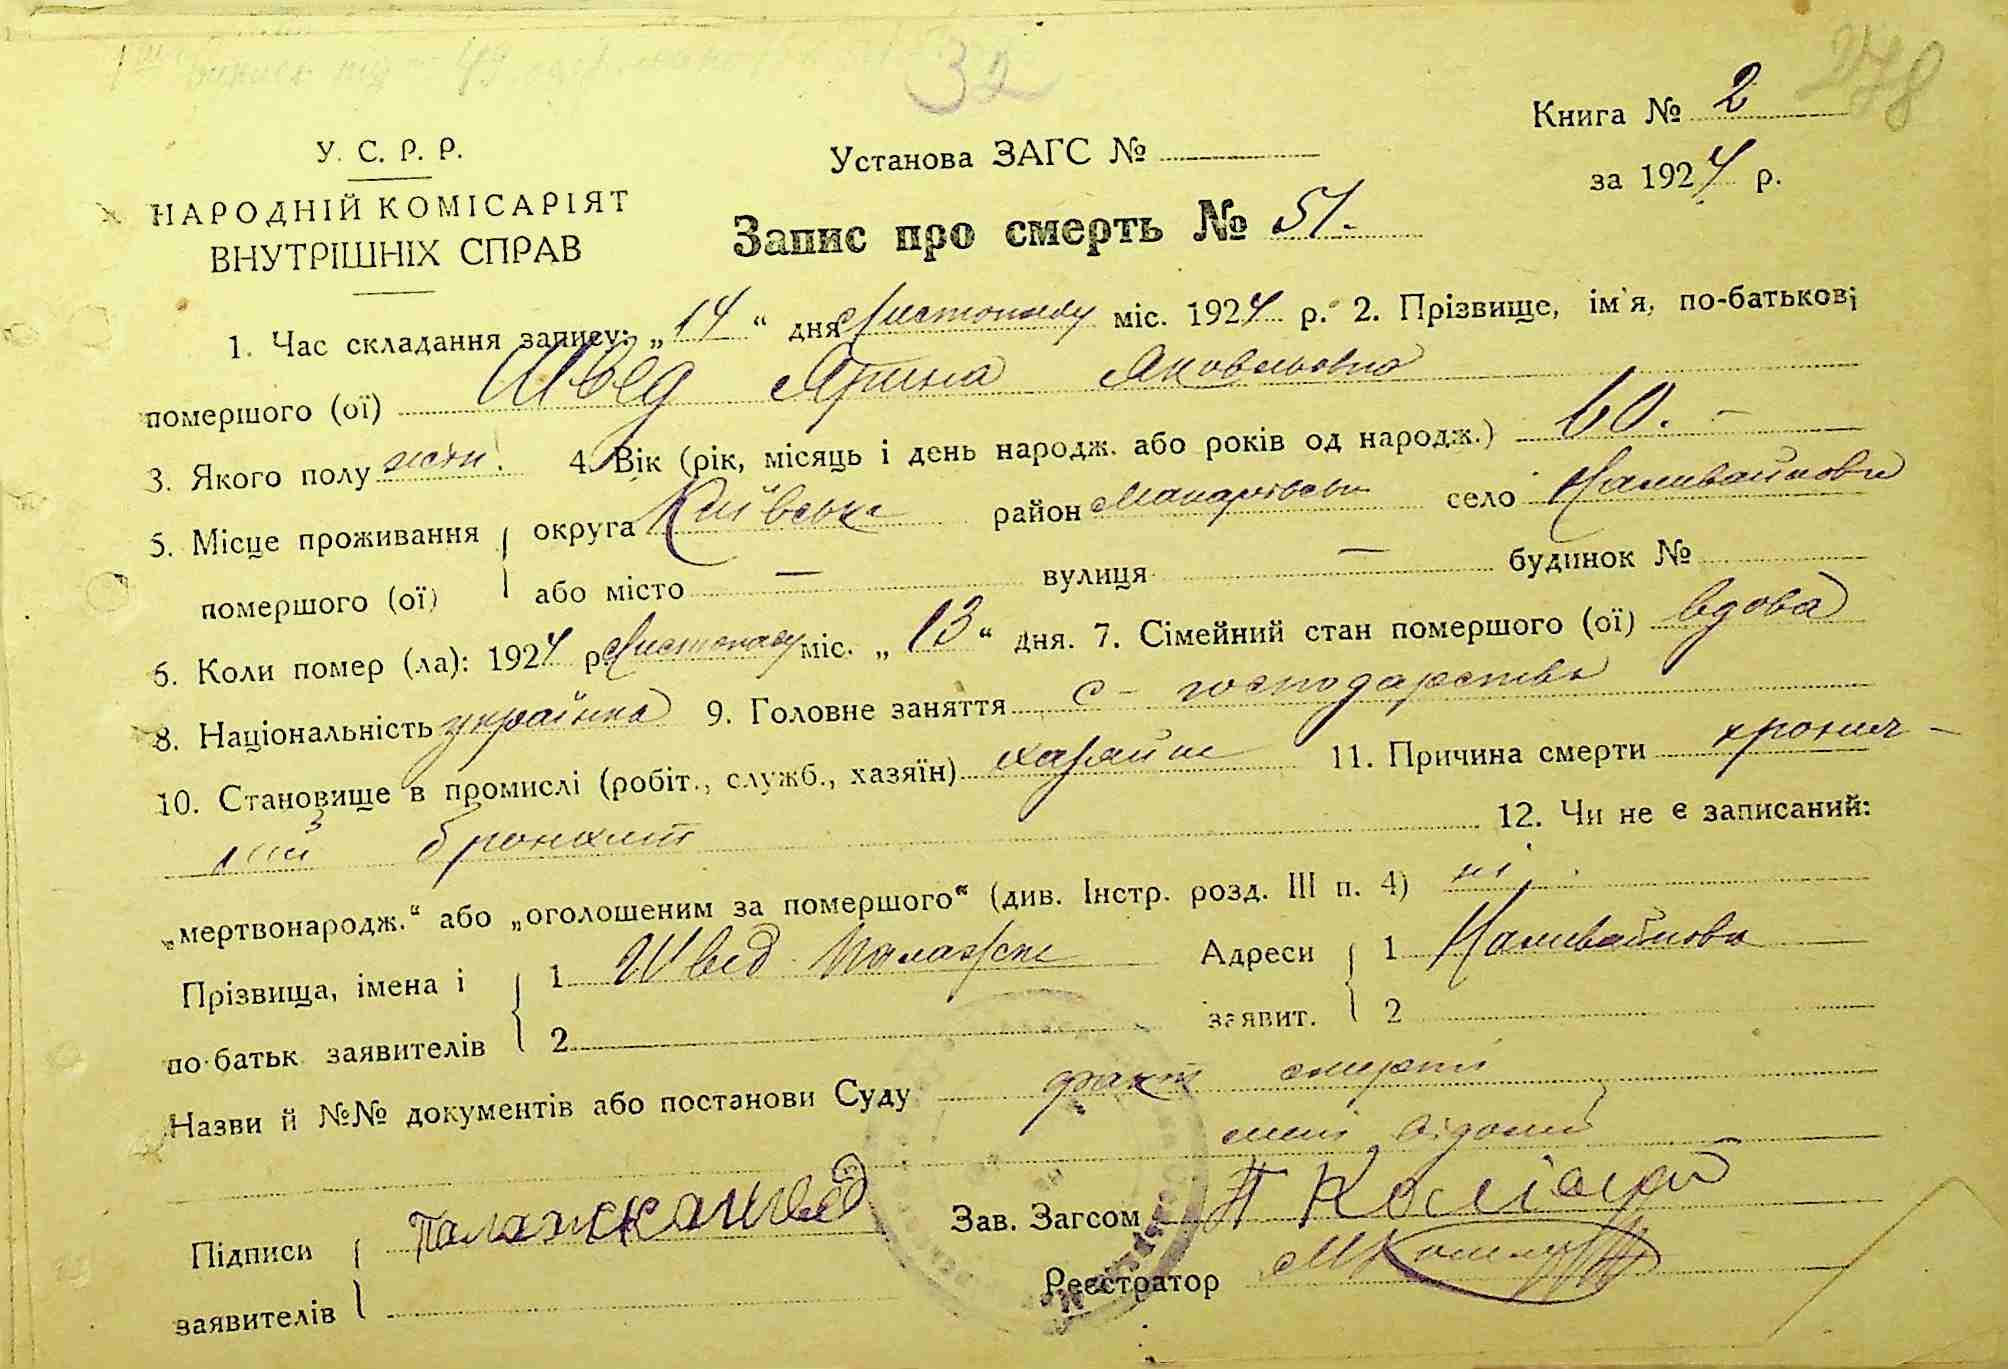 32
278
У. С. Р. Р.
НАРОДНІЙ КОМІСАРІЯТ
ВНУТРІШНІХ СПРАВ
Установа ЗАГС №
Книга № 2
за 1924 р.
Запис про смерть № 51.
1. Час складання запису: „ 14 “ дня Листопаду міс. 1924 р. 2. Прізвище, ім'я, по-батькові
помершого (ої) Швед Ярина Яковльовна
3. Якого полу жін. 4. Вік (рік, місяць і день народж. або років од народж.) 60. –
5. Місце проживання округа Київська район Макарівськ село Наливайковка
помершого (ої) або місто — вулиця — будинок №
6. Коли помер (ла): 1924 р Листопаду міс. „ 13 “ дня. 7. Сімейний стан помершого (ої) вдова
8. Національність українка 9. Головне заняття с – господарство
10. Становище в промислі (робіт., служб., хазяїн) хазяйн 11. Причина смерти хронич-
ний бронхит 12. Чи не є записаний:
„мертвонародж.“ або „оголошеним за помершого“ (див. Інстр. розд. III п. 4) ні.
Прізвища, імена і 1 Швед Палажка Адреси 1 Наливайковка
по-батьк заявителів 2 заявит. 2
Назви й №№ документів або постанови Суду факт смерті
мені відомий
Підписи Палажка Швед Зав. Загсом П
заявителів Реєстратор